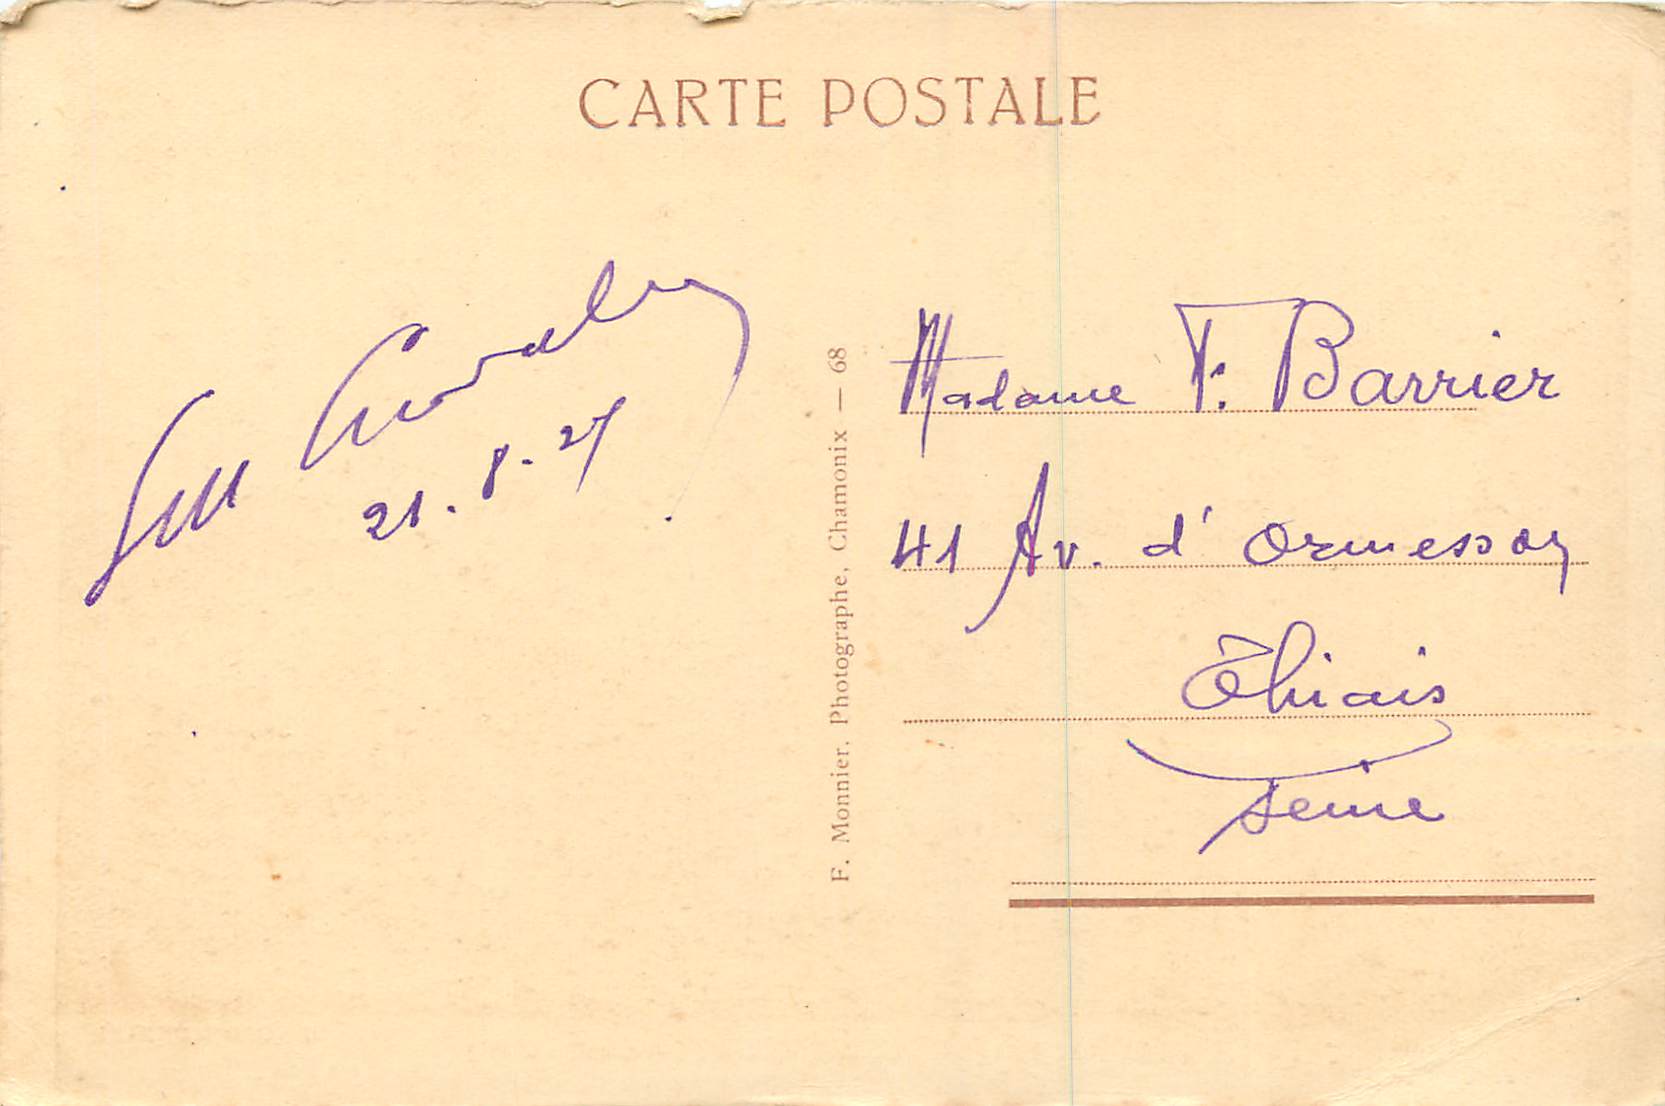 CARTE POSTALE
21.8.27
F. Monnier, Photographe, Chamonix — 68
Madame F. Barrier
41 Av. d'Ormesson
Thiais
Seine